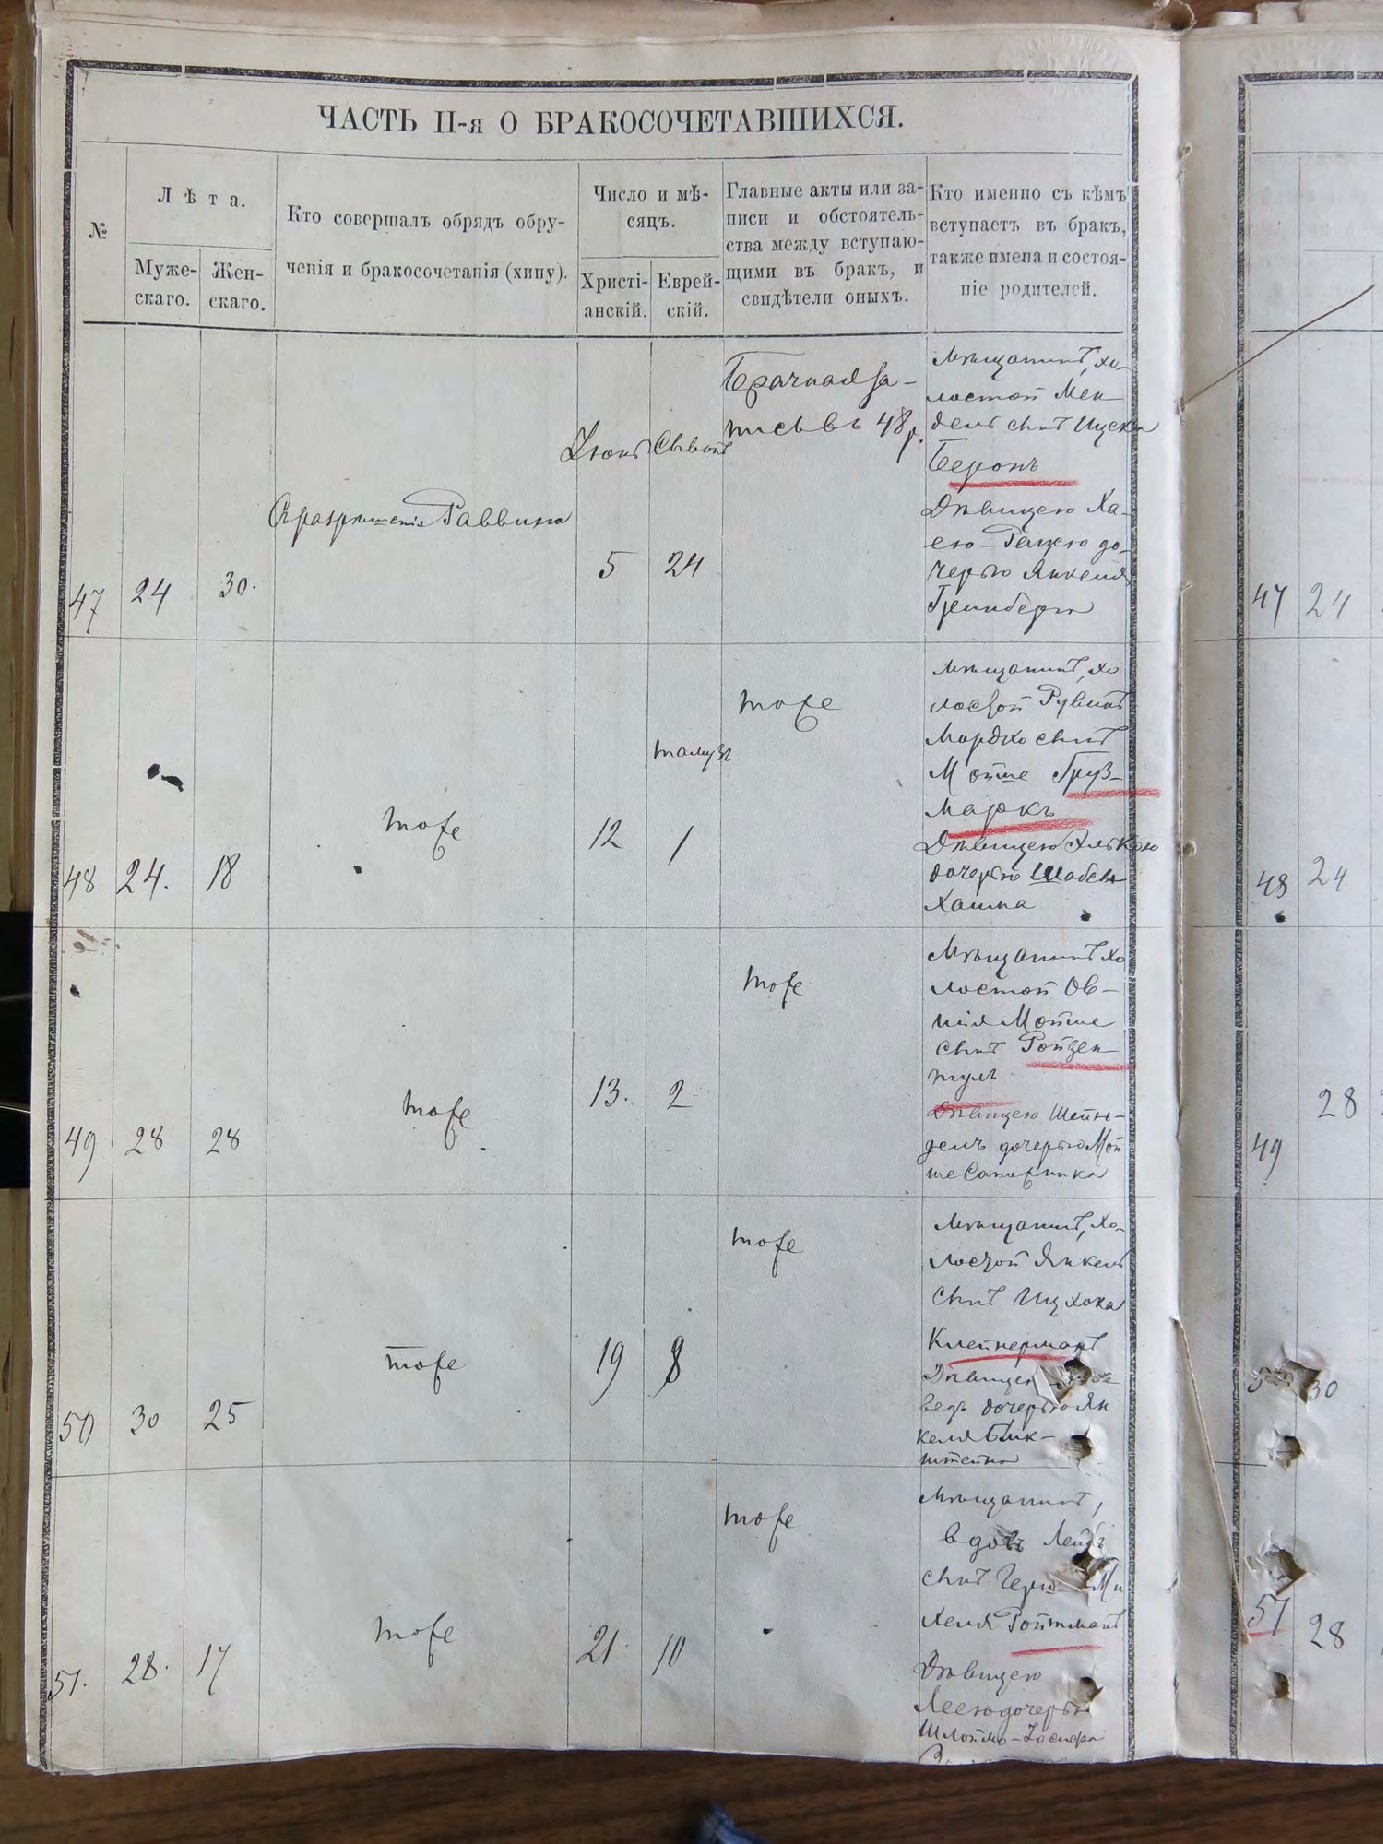 ЧАСТЬ II-я О БРАКОСОЧЕТАВШИХСЯ.
№
Лѣта.
Муже-
скаго.
Жен-
скаго.
Кто совершалъ обрядъ обру-
ченія и бракосочетанія (хипу).
Число и мѣ-
сяцъ.
Христі-
анскій.
Еврей-
скій.
Главные акты или за-
писи и обстоятель-
ства между вступаю-
щими въ бракъ, и
свидѣтели оныхъ.
Кто именно съ кѣмъ
вступаетъ въ бракъ,
также имена и состоя-
ніе родителей.
47
24
30.
Съ разрѣшенія Раввина
Іюнь
5
Сиванъ
24
Брачная за-
пись въ 48 р.
Мѣщанинъ, хо-
лостой Мен
дель сынъ Ицека
Беронъ
Дѣвицею Ха-
ею-Рацею до-
черью Янкеля
Гринберга
48
24.
18
тоже
12
тамузъ
1
тоже
Мѣщанинъ, хо
лостой Рувинъ
Мордко сынъ
Мойше Груз-
маркъ
Дѣвицею
дочерью
Хаима
49
28
28
тоже
13.
2
тоже
Мѣщанинъ хо
лостой Ов-
шія Мойше
сынъ Ройзен
Дѣвицею Шейн-
дель дочерью Мой
ше
50
30
25
тоже
19
8
тоже
Мѣщанинъ, хо-
лостой Янкель
сынъ Ицхока
Клейнерманъ
дочерью Ян
келя Блик-
штейна
51.
28.
17
тоже
21.
10
тоже
Мѣщанинъ,
вдовъ
сынъ Герш Ми
хеля Ройтманъ
Дѣвицею
Лееюдочерью
Шлоймо-Іосифа
47
24
48
24
49
28
30
51
28